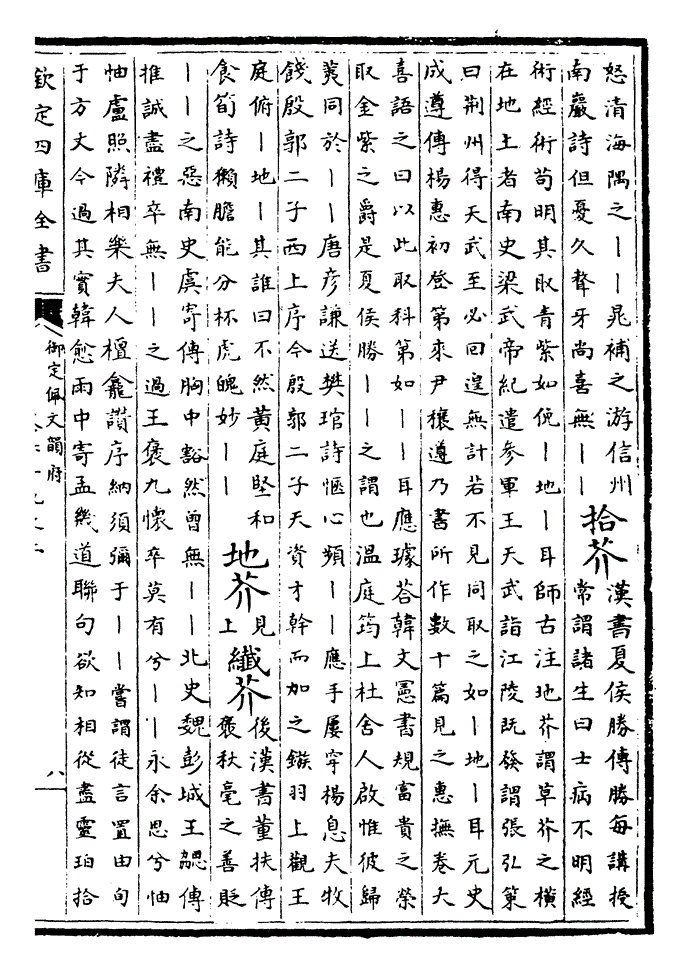 怒清海隅之丨丨晁補之游信州
南巖詩但憂久聱牙尚喜無丨丨
拾芥
漢書夏侯勝傳勝每講授
常謂諸生曰士病不明經
術經術茍明其取青紫如俛丨地丨耳師古注地芥謂草芥之橫
在地上者南史梁武帝紀遣參軍王天武詣江陵旣發謂張弘策
曰荆州得天武至必回遑無計若不見同取之如丨地丨耳元史
成遵傳楊惠初登第來尹穰遵乃書所作數十篇見之惠撫卷大
喜語之曰以此取科第如丨丨耳應璩荅韓文憲書規富貴之榮
取金紫之爵是夏侯勝丨丨之謂也溫庭筠上杜舍人啟惟彼歸
荑同於丨丨唐彦謙送樊琯詩愜心頻丨丨應手屢穿楊息夫牧
餞殷郭二子西上序今殷郭二子天資才幹而加之鏃羽上觀王
庭俯丨地丨其誰曰不然黄庭堅和
食筍詩獺膽能分杯虎魄妙丨丨
地芥
見
上
纖芥
後漢書董扶傳
褒秋毫之善貶
丨丨之惡南史虞寄傳胸中豁然曾無丨丨北史魏彭城王勰傳
推誠盡禮卒無丨丨之過王褒九懷卒莫有兮丨丨永余思兮怞
怞盧照隣相樂夫人檀龕讚序納須彌于丨丨嘗謂徒言置由旬
于方丈今過其實韓愈雨中寄孟幾道聯句欲知相從盡靈珀拾
欽定四庫全書
御定佩文韻府
八